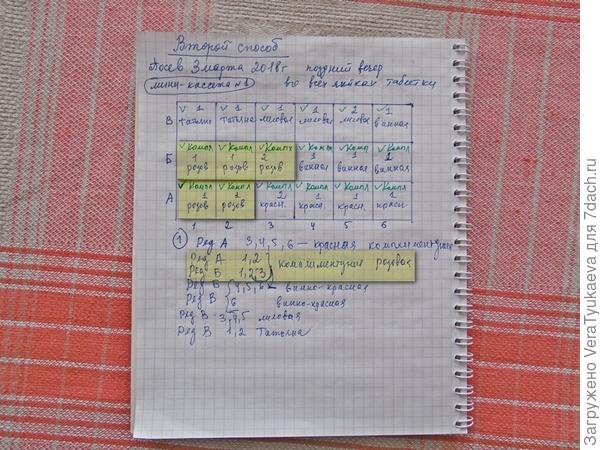 Второй способ
Посев 3 марта 2018г поздний вечер
мини-кассета №1 во всех ячейках таблетки
В
1 Татьяна
1 Татьяна
1 лиловая
1 лиловая
2 лиловая
1 винная
Б
Компл 1 розов
Компл 1 розов
Компл 2 розов
Компл 1 винная
Компл 1 винная
Компл винная
А
Компл 1 розов
Компл 1 розов
Компл красн.
Компл 1 красн.
Компл 1 красн.
Компл 1 красн
1 2 3 4 5 6
1 Ряд А 3,4,5,6 — красная комплиментуния
Ряд А 1,2
Ряд Б 1,2,3 комплиментуния розовая
Ряд Б 4,5,6 — винно-красная
Ряд В 6 винно-красная
Ряд В 3,4,5 лиловая
Ряд В 1,2 Татьяна
Загружено VeraTyukaeva для 7dach.ru